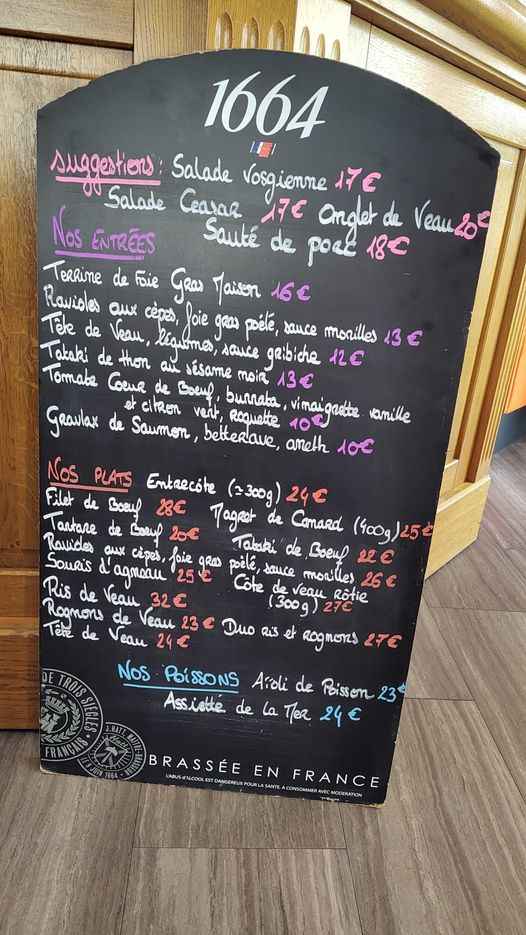 1664
Suggestions: Salade Vosgienne 17€
Salade Ceasar 17€ Onglet de Veau 20€
Sauté de porc 18€
NOS ENTRÉES
Terrine de Foie Gras Maison 16€
Ravioles aux cèpes, foie gras poêlé, sauce morilles 13€
Tête de Veau, légumes, sauce gribiche 12€
Tataki de thon au sésame noir 13€
Tomate Coeur de Boeuf, burrata, vinaigrette vanille
et citron vert, roquette 10€
Gravlax de Saumon, betterave, aneth 10€
NOS PLATS Entrecôte (≃300g) 24€
Filet de Boeuf 28€ Magret de Canard (400g) 25€
Tartare de Boeuf 20€ Tataki de Boeuf 22€
Ravioles aux cèpes, foie gras poêlé, sauce morilles 26€
Souris d'agneau 25€ Côte de veau rôtie
(300g) 27€
Ris de Veau 32€
Rognons de Veau 23€ Duo ris et rognons 27€
Tête de Veau 24€
NOS POISSONS Aïoli de Poisson 23€
Assiette de la Mer 24€
DE TROIS SIÈCLES
FRANÇAIS
LE 9 JUIN 1664
BRASSÉE EN FRANCE
L'ABUS D'ALCOOL EST DANGEREUX POUR LA SANTÉ. A CONSOMMER AVEC MODERATION